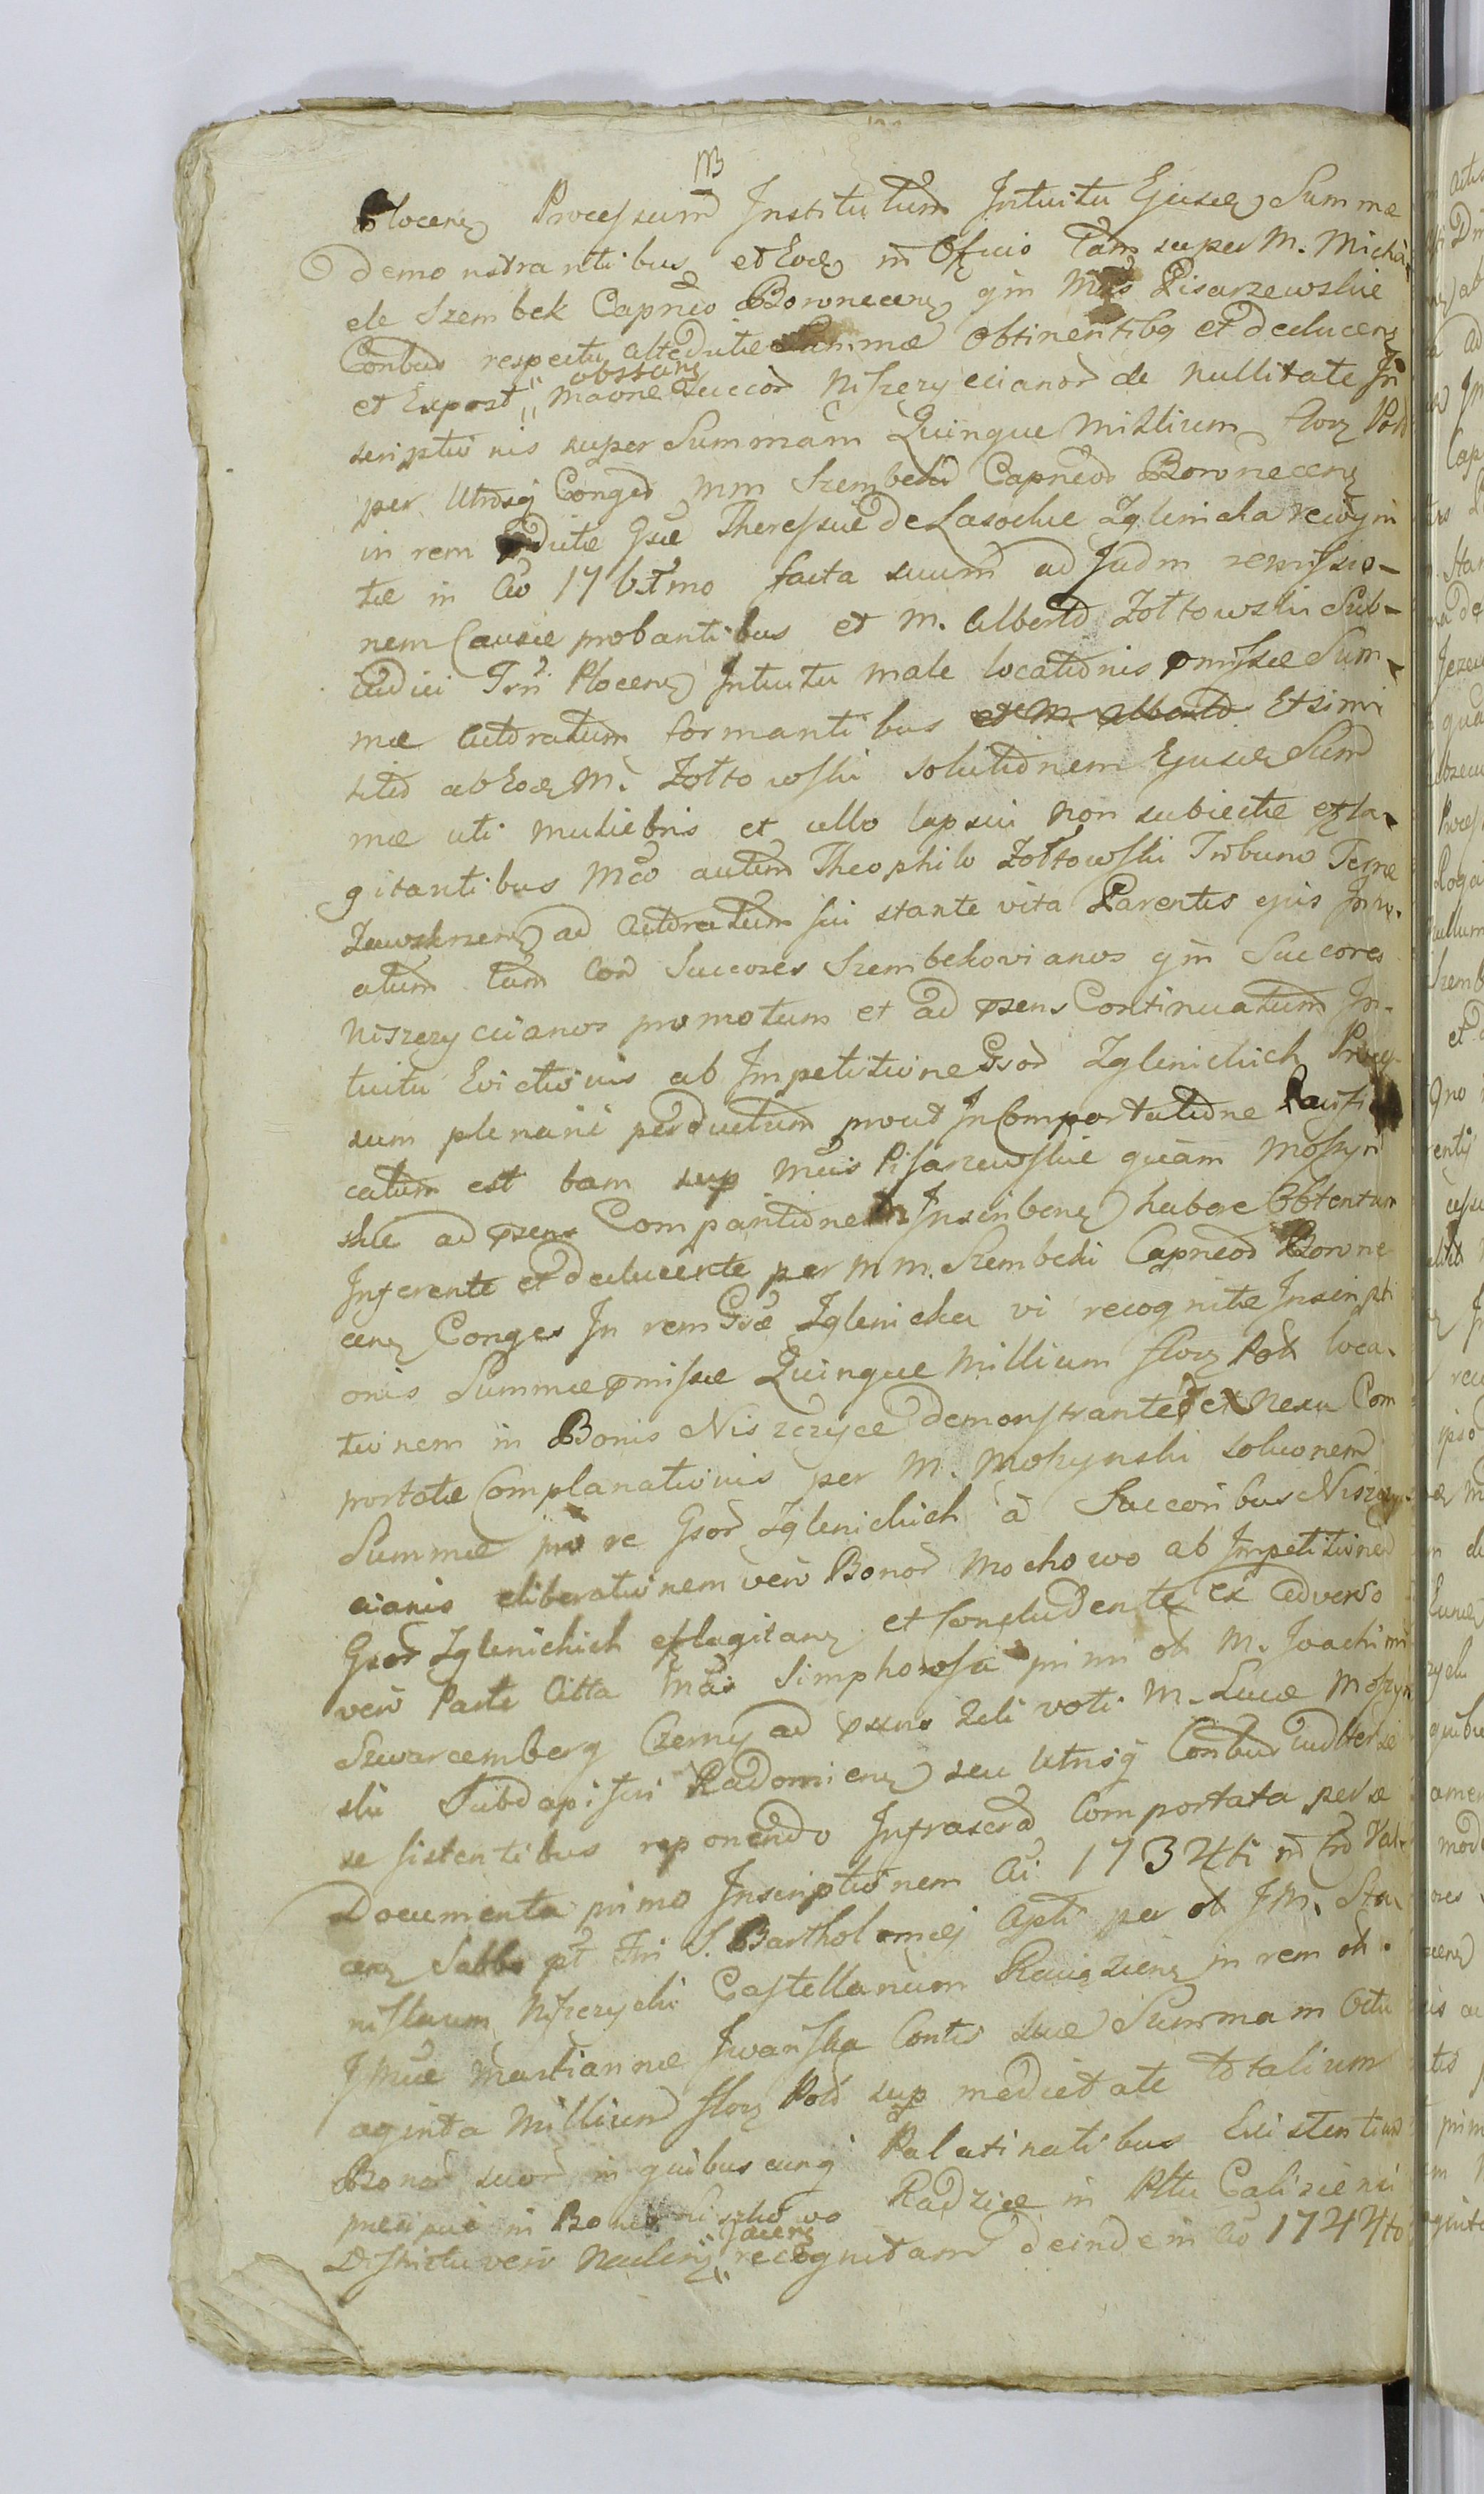 Plocen Processum Institutum Intuitu Ejusd Summæ
demonstrantibus et Eod in Officio tam super M. Micha
ele Szembek Capneo Borownecen qm Mcis Pisarzewskie
Conbus respectu altedictæ Summæ obtinentibq et deducen
et Expost obstan Mcione Succor Niszczycianor de nullitate In
scriptionis super Summam Quinque Millium flor Pol
per Utrosq Conges MM Szembeki Capneod Borownecen
in rem dictæ Gsæ Theressiæ de Lasockie Zglenicka recogni
tæ in Ao 17 facta suum ad Judm remissio-
nem Causæ probantibus et M. Alberto Zołtowski Sub-
iudici Trri Plocen Intuitu male locationis pmissæ Sum-
mæ Actoratum formantibus et M. Alberto Et simi
liter ab Eod M. Zołtowski solutionem Ejusd Sum
mæ uti muliebris et ullo lapsui non subiectæ effla-
gitantibus Mco autem Theophilo Zołtowski Tribuno Terræ
Zawskrzen ad Actoratum sui stante vita Parentis ejus
atum tam Con Succores Szembekovianos qm Succores
Niszczycianos promotum et ad psens Continuatum In-
tuitu Evictionis ab Impetitione Gsor Zglenickich Proces-
sum plenarie perductum prout In Comportatione
catum est tam sup Mcis Pisarzewskie quam Moszyn
skie ad psens Comparitionem Inscriben habere Obtentum
Inferente et deducente per MM. Szembeki Capneod Borowne
cen Conges In rem Gsæ Zglenicka vi recognitæ Inscripti
onis Summæ pmissæ Quinque Millium flor Pol loca-
tionem in Bonis Niszczyce demonstrante et ex nexu Com
portatæ Complanationis per M. Moszynski solutionem
Summæ pro re Gsor Zglenickich a Succoribus Niszczy
cianis eliberationem vero Bonor Mochowo ab Impetitione
Gsor Zglenickich efflagitan et Concludente ex adverso
vero Parte Citta Mcis Simphorosa primi ol M. Joachimi
Szwarcemberg Czerny ad psens 2di voti M. Lucæ Moszyn
ski Subdapiferi Radomien seu Utrisq Conbus
se sistentibus reponendo Infrascrta Comportata per se
Documenta primo Inscriptionem Ai 1734ti in Cro Val-
cen Sabbo pt Fri S. Bartholomæi Apli per ol JM. Sta-
nislaum Niszczycki Castellanum Raciązien in rem ol.
JMcæ Martiannæ Iwańska Contis suæ Summam Octu
aginta Millium flor Pol sup medietate totalium
Bonor suor in quibuscunq Palatinatibus Existentium
præcipue in Bonis Radzice in Pltu Calisiensi
Districtu vero Naclen jacen recognitam deinde in Ao 1744to